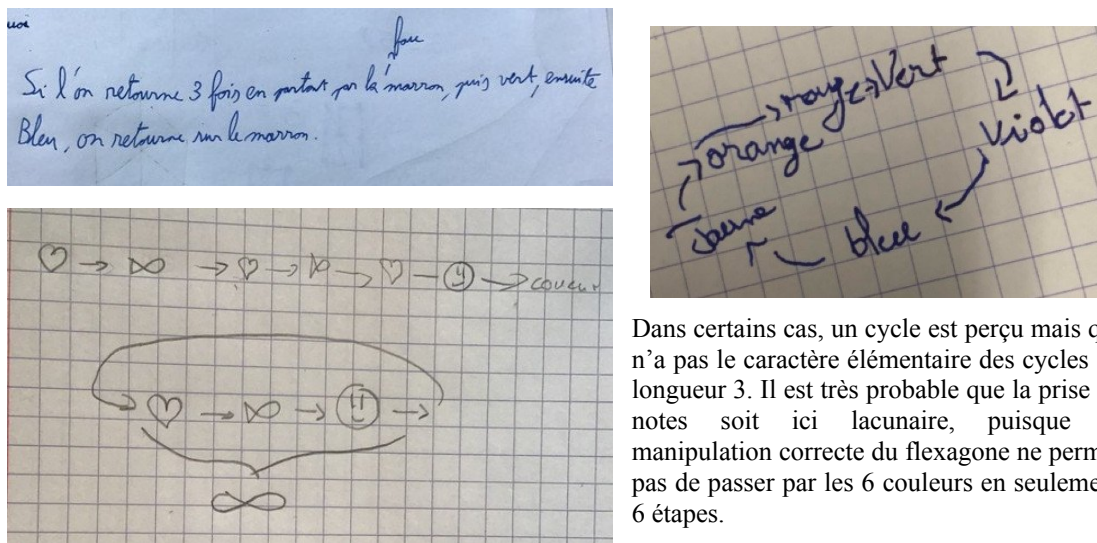 face
Si l'on retourne 3 fois en partant par la marron, puis vert, ensuite
Bleu, on retourne sur le marron.
→ orange → rouge → Vert
violet
Jaune
bleu
♡ → ∞ → ♡ → ∞ → ♡ → → couleur
♡ → ∞ → →
∞
Dans certains cas, un cycle est perçu mais q
n'a pas le caractère élémentaire des cycles
longueur 3. Il est très probable que la prise
notes soit ici lacunaire, puisque
manipulation correcte du flexagone ne perm
pas de passer par les 6 couleurs en seuleme
6 étapes.